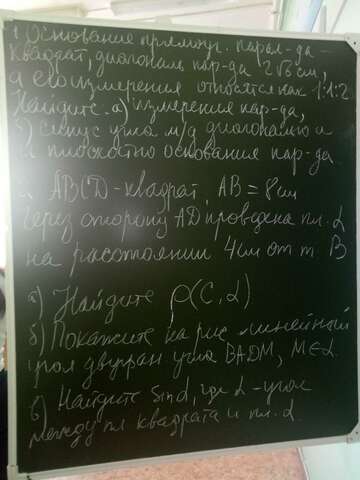 1. Основание прямоуг. парал-да -
квадрат, диагональ пар-да 2√6 см,
а его измерения относятся как 1:1:2
Найдите. а) измерения пар-да,
б) синус угла м/д диагональю и
плоскостью основания пар-да
ABCD - квадрат, AB = 8 см
Через сторону AD проведена пл. α
на расстоянии 4 см от т. B
а) Найдите ρ(C, α)
б) Покажите на рис линейный
угол двугран угла BADM, M∈α.
в) Найдите sin α, где α - угол
между пл квадрата и пл. α.